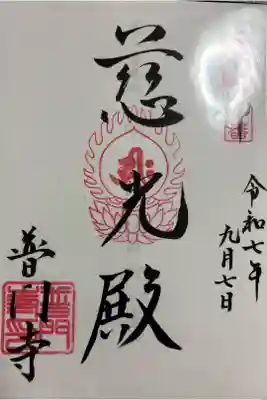 慈光殿
令和七年
九月七日
普門寺